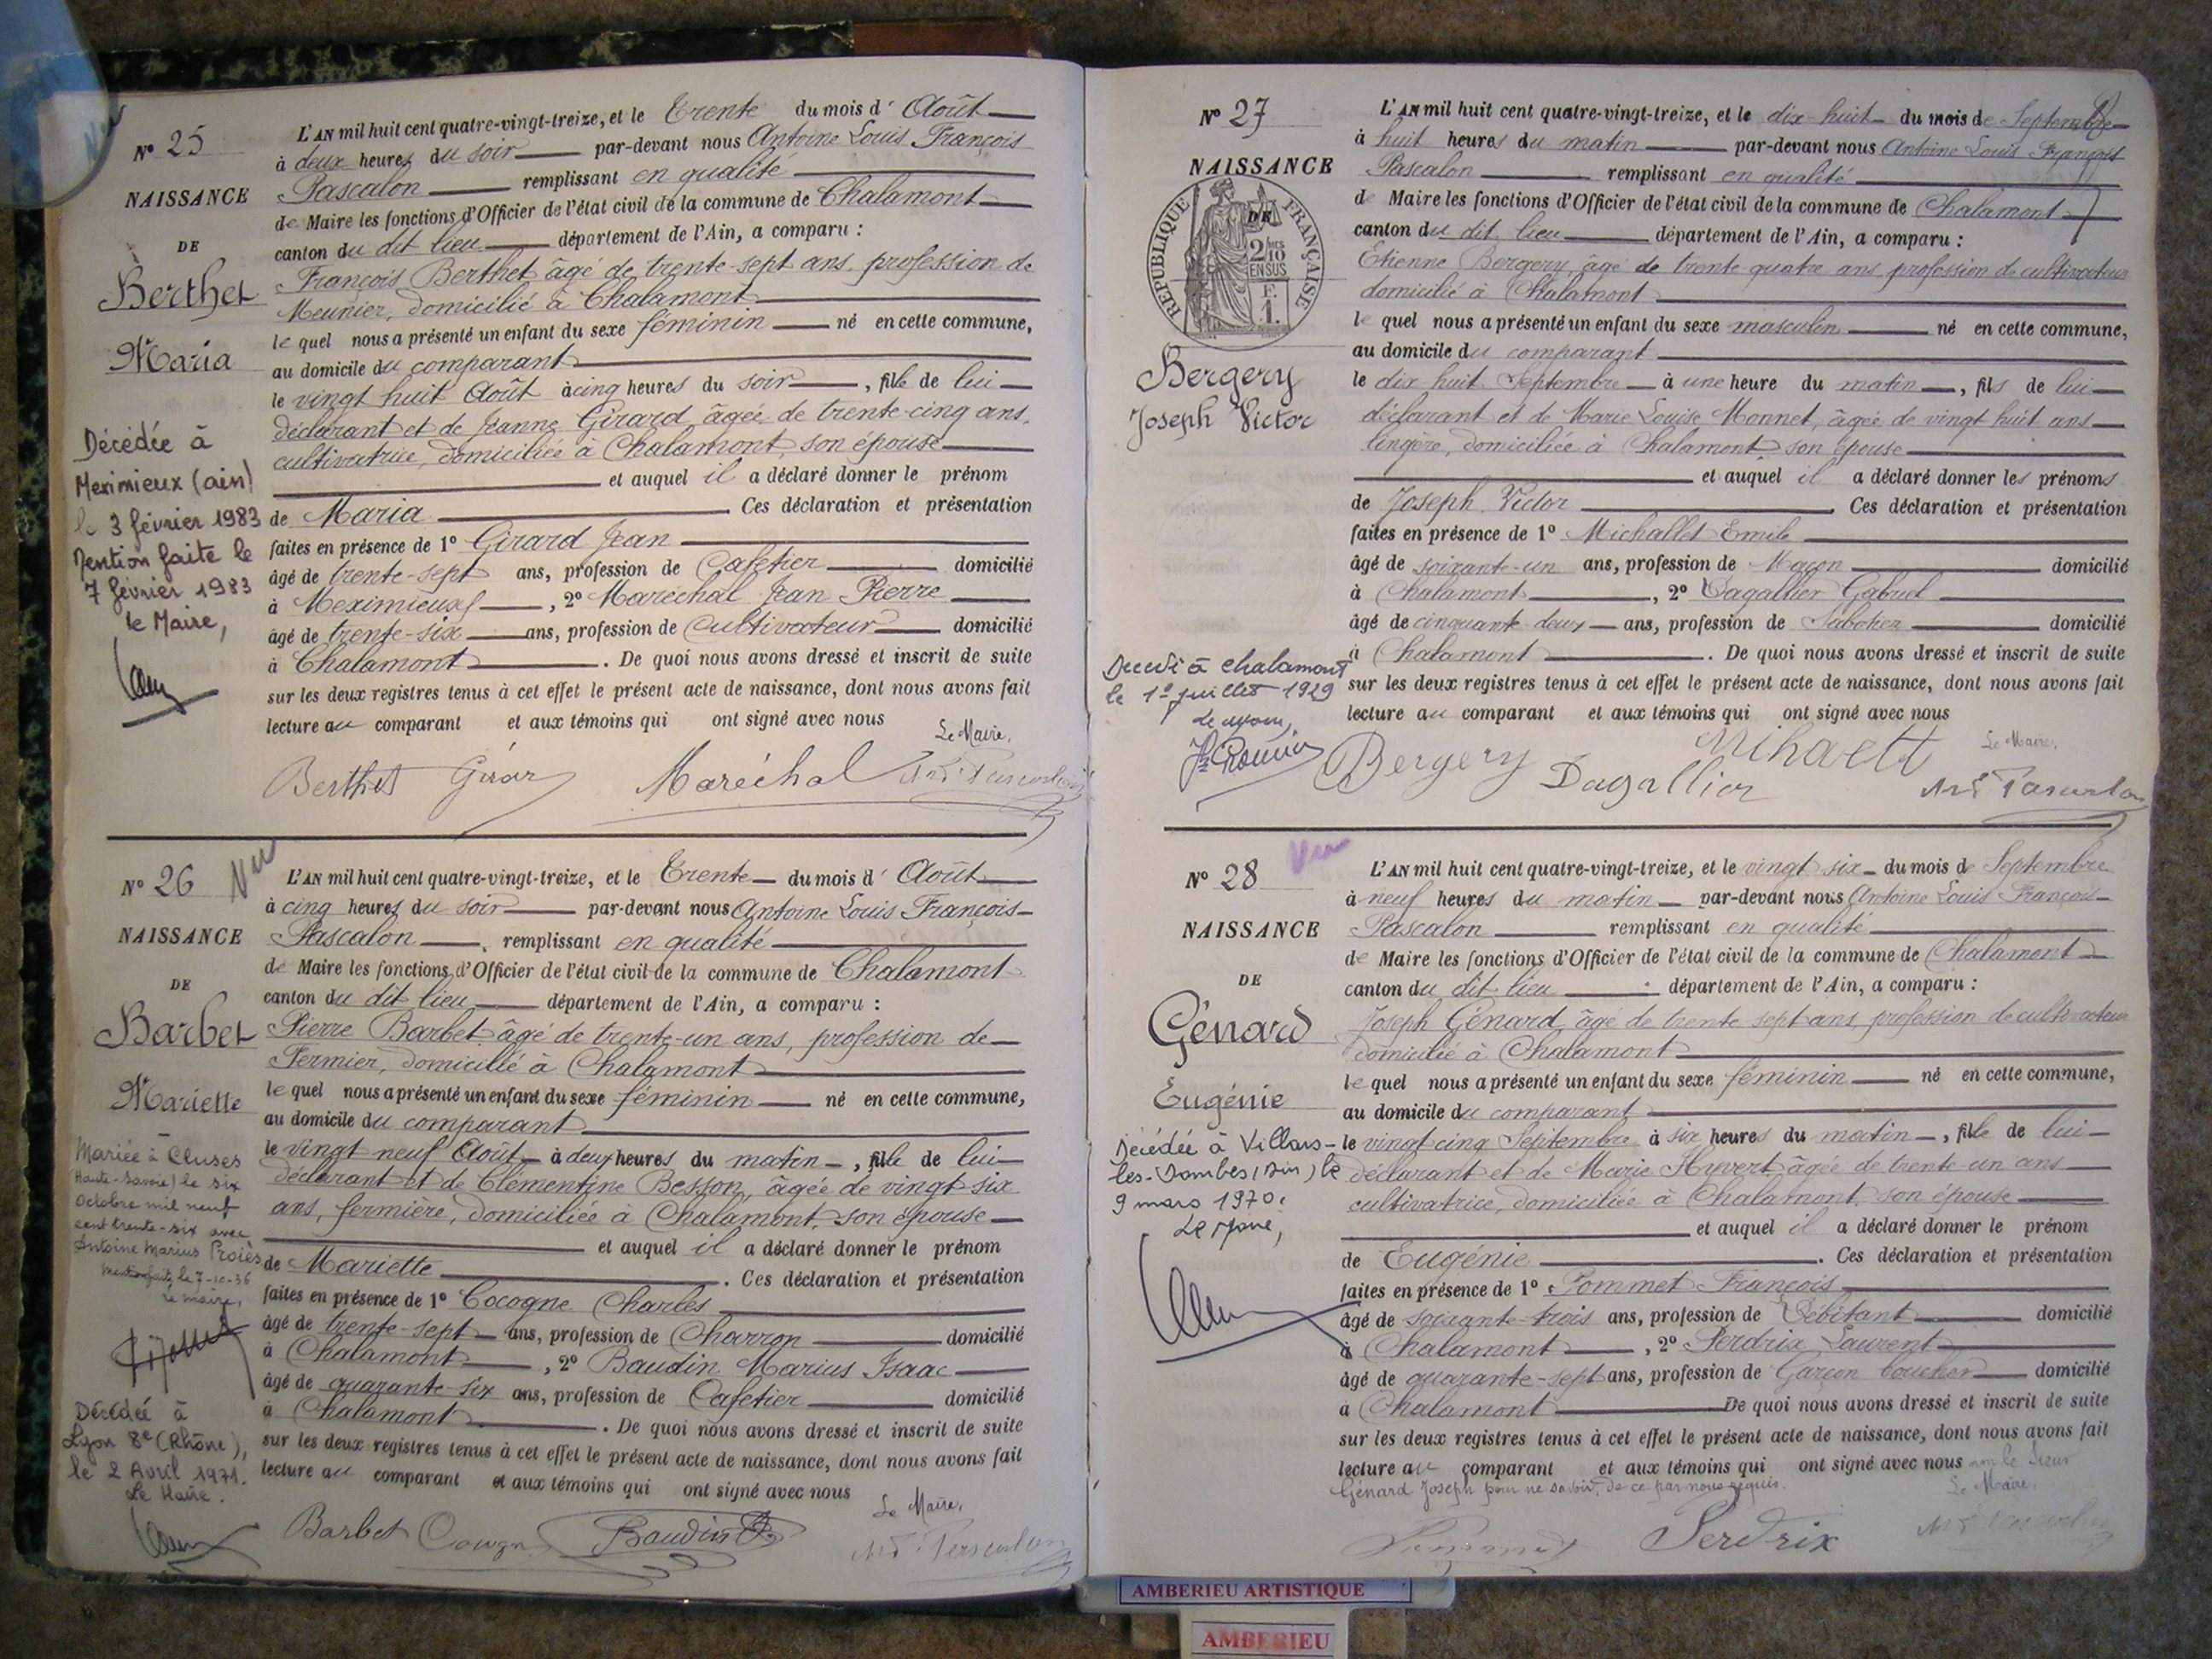 N° 25
NAISSANCE
DE
Berthet
Maria
Décédée à
Meximieux (ain)
le 3 février 1983
Mention faite le
7 février 1983
le Maire,
L'AN mil huit cent quatre-vingt-treize, et le Trente du mois d' Août
à deux heures du soir par-devant nous Antoine Louis François
Pascalon remplissant en qualité
de Maire les fonctions d'Officier de l'état civil de la commune de Chalamont
canton du dit lieu département de l'Ain, a comparu :
François Berthet âgé de trente-sept ans, profession de
Meunier, domicilié à Chalamont
le quel nous a présenté un enfant du sexe féminin né en cette commune,
au domicile du comparant
le vingt huit Août à cinq heures du soir, fille de lui
déclarant et de Jeanne Girard âgée de trente-cinq ans,
cultivatrice, domiciliée à Chalamont, son épouse
et auquel il a déclaré donner le prénom
de Maria Ces déclaration et présentation
faites en présence de 1° Girard Jean
âgé de trente-sept ans, profession de Cafetier domicilié
à Meximieux, 2° Maréchal Jean Pierre
âgé de trente-six ans, profession de Cultivateur domicilié
à Chalamont. De quoi nous avons dressé et inscrit de suite
sur les deux registres tenus à cet effet le présent acte de naissance, dont nous avons fait
lecture au comparant et aux témoins qui ont signé avec nous
Le Maire,
Berthet Girar Maréchal
N° 26 Vu
NAISSANCE
DE
Barbet
Mariette
Mariée à Cluses
Haute-Savoie) le six
octobre mil neuf
cent trente-six avec
Antoine Marius Proiès
Mention faite le 7-10-36
Le maire,
Décédée à
Lyon 8e (Rhône),
le 2 Avril 1971.
Le Maire.
L'AN mil huit cent quatre-vingt-treize, et le Trente du mois d' Août
à cinq heures du soir par-devant nous Antoine Louis François
Pascalon, remplissant en qualité
de Maire les fonctions d'Officier de l'état civil de la commune de Chalamont
canton du dit lieu département de l'Ain, a comparu :
Pierre Barbet âgé de trente-un ans, profession de
Fermier, domicilié à Chalamont
le quel nous a présenté un enfant du sexe féminin né en cette commune,
au domicile du comparant
le vingt neuf Août à deux heures du matin, fille de lui
déclarant et de Clémentine Besson, âgée de vingt six
ans, fermière, domiciliée à Chalamont, son épouse
et auquel il a déclaré donner le prénom
de Mariette. Ces déclaration et présentation
faites en présence de 1° Cocogne Charles
âgé de trente-sept ans, profession de Charron domicilié
à Chalamont, 2° Baudin Marius Isaac
âgé de quarante-six ans, profession de Cafetier domicilié
à Chalamont. De quoi nous avons dressé et inscrit de suite
sur les deux registres tenus à cet effet le présent acte de naissance, dont nous avons fait
lecture au comparant et aux témoins qui ont signé avec nous
Le Maire,
Barbet Baudin
N° 27
NAISSANCE
DE
RÉPUBLIQUE FRANÇAISE
2/10
EN SUS
F.
1.
Bergery
Joseph Victor
Décédé à Chalamont
le 1er juillet 1929
L'AN mil huit cent quatre-vingt-treize, et le dix-huit du mois de Septembre
à huit heures du matin par-devant nous Antoine Louis François
Pascalon remplissant en qualité
de Maire les fonctions d'Officier de l'état civil de la commune de Chalamont
canton du dit lieu département de l'Ain, a comparu :
Etienne Bergery âgé de trente quatre ans profession de cultivateur
domicilié à Chalamont
le quel nous a présenté un enfant du sexe masculin né en cette commune,
au domicile du comparant
le dix huit Septembre à une heure du matin, fils de lui
déclarant et de Marie Louise Monnet, âgée de vingt huit ans
lingère, domiciliée à Chalamont, son épouse
et auquel il a déclaré donner les prénoms
de Joseph Victor. Ces déclaration et présentation
faites en présence de 1° Michallet Emile
âgé de soixante-un ans, profession de Maçon domicilié
à Chalamont, 2° Dagallier Gabriel
âgé de cinquante-deux ans, profession de Sabotier domicilié
à Chalamont. De quoi nous avons dressé et inscrit de suite
sur les deux registres tenus à cet effet le présent acte de naissance, dont nous avons fait
lecture au comparant et aux témoins qui ont signé avec nous
Le Maire,
Bergery Dagallier
N° 28 Vu
NAISSANCE
DE
Génard
Eugénie
Décédée à Villars-
les-Dombes (Ain) le
9 mars 1970.
Le Maire,
L'AN mil huit cent quatre-vingt-treize, et le vingt six du mois de Septembre
à neuf heures du matin par-devant nous Antoine Louis François
Pascalon remplissant en qualité
de Maire les fonctions d'Officier de l'état civil de la commune de Chalamont
canton du dit lieu département de l'Ain, a comparu :
Joseph Génard, âgé de trente sept ans profession de cultivateur
domicilié à Chalamont
le quel nous a présenté un enfant du sexe féminin né en cette commune,
au domicile du comparant
le vingt cinq Septembre à six heures du matin, fille de lui
déclarant et de Marie Hyvert âgée de trente-un ans
cultivatrice, domiciliée à Chalamont, son épouse
et auquel il a déclaré donner le prénom
de Eugénie. Ces déclaration et présentation
faites en présence de 1° Pommet François
âgé de soixante-trois ans, profession de Débitant domicilié
à Chalamont, 2° Perdrix Laurent
âgé de quarante-sept ans, profession de Garçon boucher domicilié
à Chalamont De quoi nous avons dressé et inscrit de suite
sur les deux registres tenus à cet effet le présent acte de naissance, dont nous avons fait
lecture au comparant et aux témoins qui ont signé avec nous non le Sieur
Génard Joseph pour ne savoir, de ce par nous requis.
Le Maire,
Perdrix
AMBERIEU ARTISTIQUE
AMBERIEU